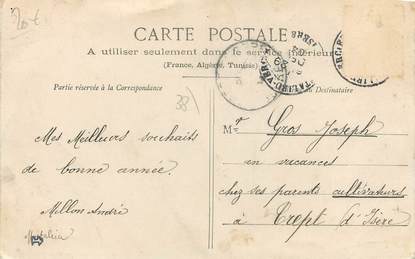 CARTE POSTALE
A utiliser seulement dans le service intérieur
(France, Algérie, Tunisie)
Partie réservée à la Correspondance
Destinataire
38
Mes Meilleurs souhaits
de bonne année.
Millon André
Mr Gros Joseph
en vacances
chez ses parents cultivateurs
à Trept d'Isère